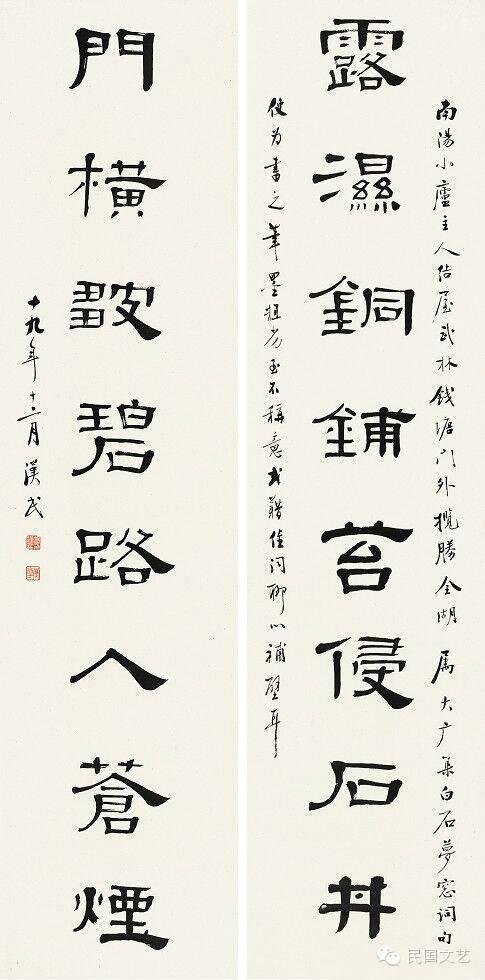 南湯小廬主人結屋武林錢塘門外攬勝全湖屬大廣集白石夢窗詞句
露濕銅鋪苔侵石井
使為書之筆墨粗劣至不稱意或藉佳詞聊以補壁耳
門橫皺碧路入蒼煙
十九年十二月漢民
民国文艺